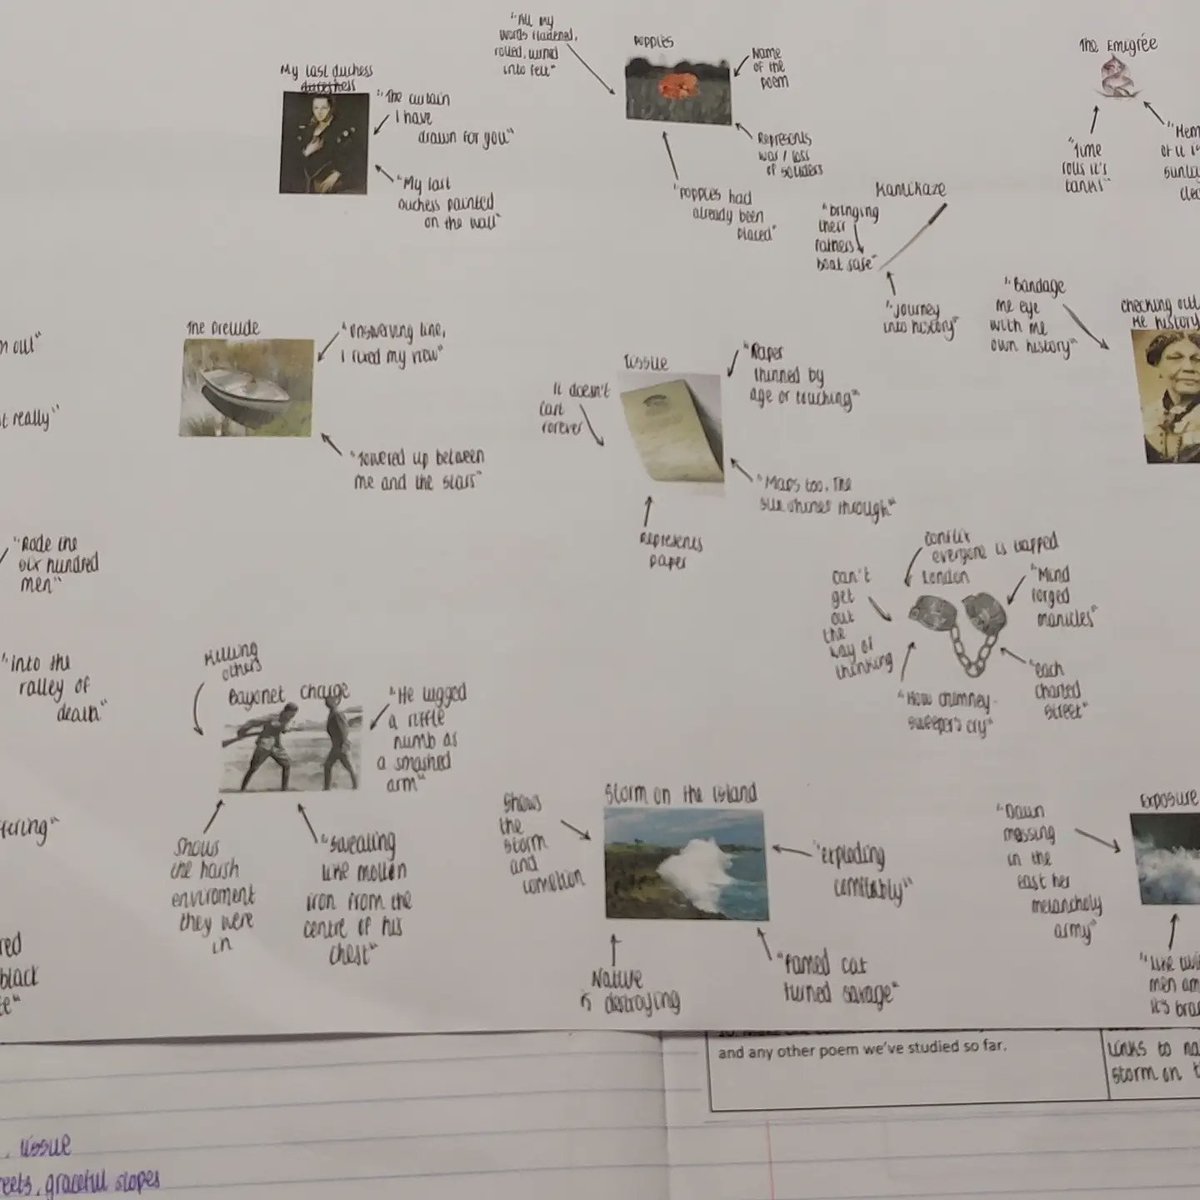 "All my
words flattened,
rolled, turned
into felt"
Poppies
Name
of the
poem
Represents
war / loss
of soliders
"Poppies had
already been
placed"
The Emigrée
"Time
rolls it's
tanks"
sunli
clea
My last duchess
"The curtain
I have
drawn for you"
"My last
duchess painted
on the wall"
Kamikaze
"bringing
their
fathers
boat safe"
"Journey
into history"
"Bandage
me eye
with me
own history"
Checking out
me history
The prelude
I fixed my view"
"Towered up between
me and the stars"
Tissue
It doesn't
last
forever
"Paper
thinned by
age or touching"
"Maps too. The
sun shines through"
Represents
paper
n out"
t really"
"Rode the
six hundred
men"
"Into the
valley of
death"
ffering"
red
black
ce"
conflict
everyone is trapped
London
can't
get
out
the
way of
thinking
"Mind
forged
manicles"
"How chimney-
sweepers cry"
"each
charted
street"
Killing
others
Bayonet charge
"He lugged
a riffle
numb as
a smashed
arm"
Shows
the harsh
enviroment
they were
in
"Sweating
like molten
iron from the
centre of his
chest"
Storm on the island
Shows
the
storm
and
"exploding
comfitably"
Nature
is destroying
"Tamed cat
turned savage"
Exposure
"Dawn
massing
in the
east her
melancholy
army"
men am
it's bra
and any other poem we've studied so far.
Links to na
Storm on t
, tissue
reets, graceful slopes